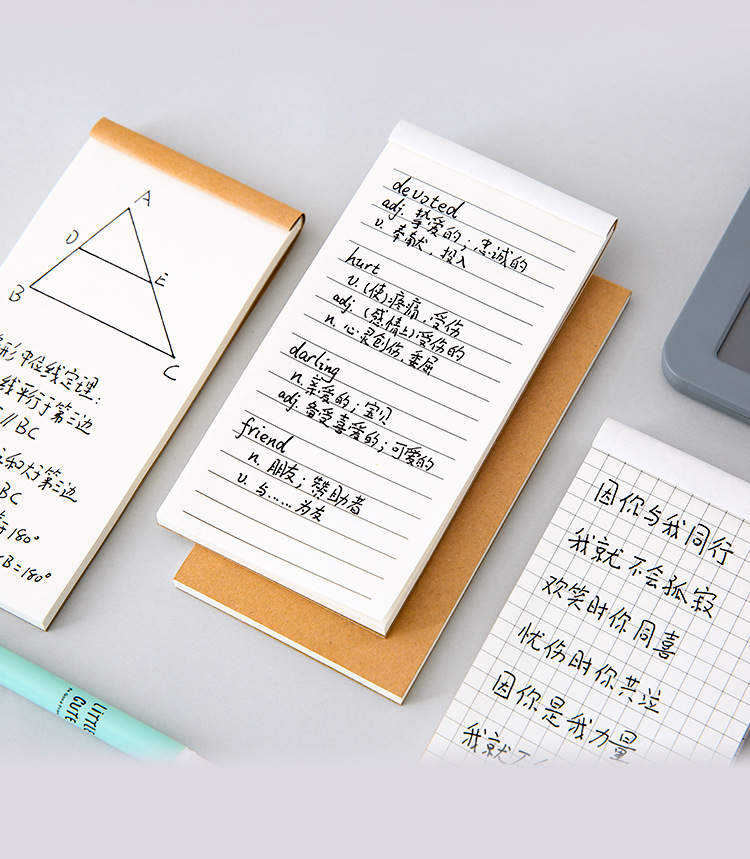 A
D
E
B
C
形中位线定理:
线平行于第三边
// BC
和大于第三边
BC
180°
B=180°
devoted
adj. 挚爱的；忠诚的
v. 奉献，投入
hurt
v. (使)疼痛，受伤
adj. (感情上)受伤的
n. 心灵创伤，委屈
darling
n. 亲爱的；宝贝
adj. 备受喜爱的；可爱的
friend
n. 朋友；赞助者
v. 与……为友
因你与我同行
我就不会孤寂
欢笑时你同喜
忧伤时你共泣
因你是我力量
我就不
LITTLE
CUTE